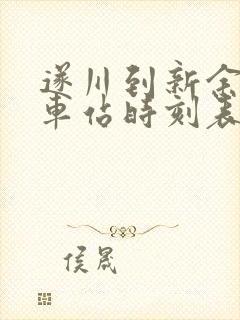 遂川到新余
車站時刻表
侯晟